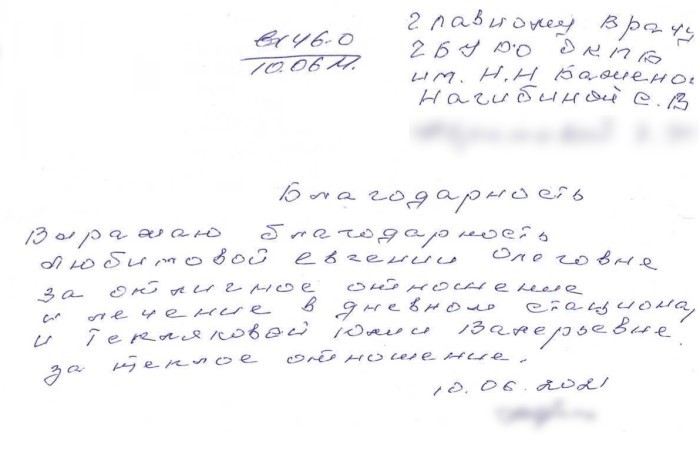 вх 46-0
10.06 М.
Главному врачу
ГБУ РО ОКПБ
им. Н.Н Баженов
Нагибиной С.В
Благодарность
Выражаю благодарность
Любимовой Евгении Олеговне
за отличное отношение
и лечение в дневном стациона
и Текляковой Юлии Валерьевне.
за теплое отношение.
10.06.2021